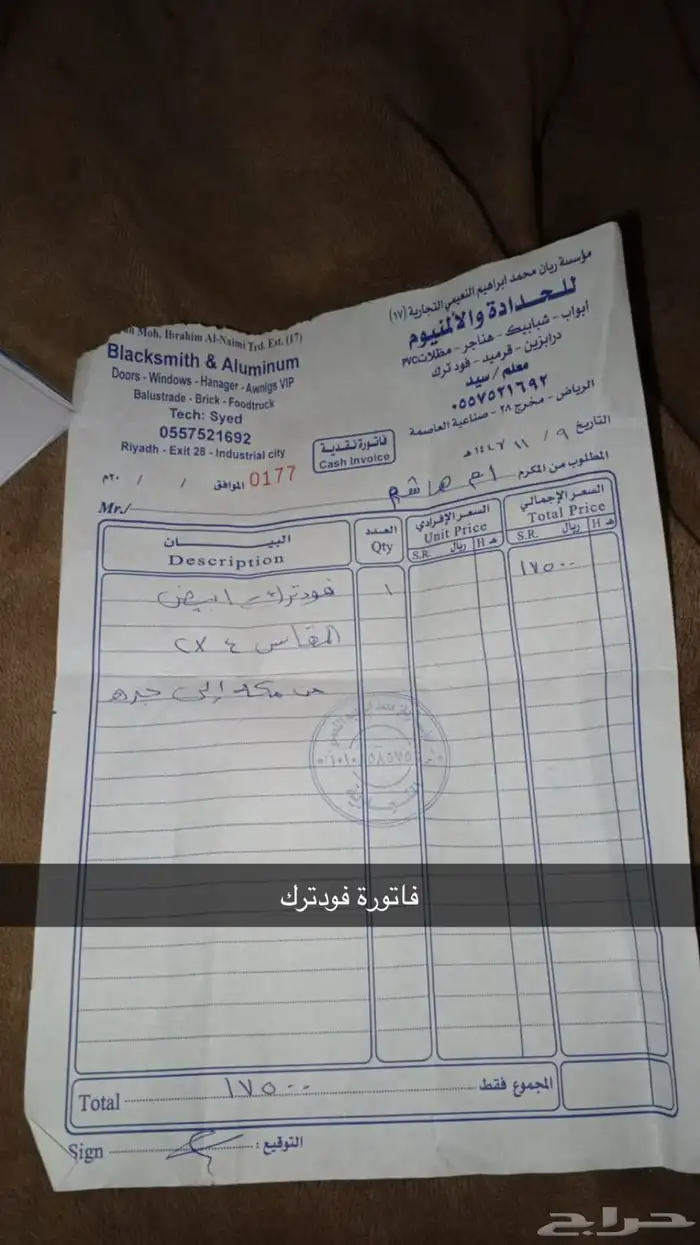 مؤسسة ريان محمد ابراهيم النعيمي التجارية (١٧)
للحدادة والألمنيوم
أبواب - شبابيك - هناجر - مظلات PVC
درابزين - قرميد - فودترك
معلم / سيد
٠٥٥٧٥٢١٦٩٢
الرياض - مخرج ٢٨ - صناعية العاصمة
Moh. Ibrahim Al-Naimi Trd. Est. (17)
Blacksmith & Aluminum
Doors - Windows - Hanager - Awnigs VIP
Balustrade - Brick - Foodtruck
Tech: Syed
0557521692
Riyadh - Exit 28 - Industrial city
فاتورة نقدية
Cash Invoice
التاريخ ٩ / ١١ / ١٤٤٦ هـ
الموافق / / ٢٠م
0177
المطلوب من المكرم ام هاشم
Mr./
البيان
Description
العدد
Qty
السعر الإفرادي
Unit Price
S.R. ريال H هـ
السعر الإجمالي
Total Price
S.R. ريال H هـ
فودترك ابيض ١ ١٧٥٠٠
المقاس ٤ x ٢
من مكه إلى جده
فاتورة فودترك
المجموع فقط ١٧٥٠٠ Total
التوقيع : Sign
حراج